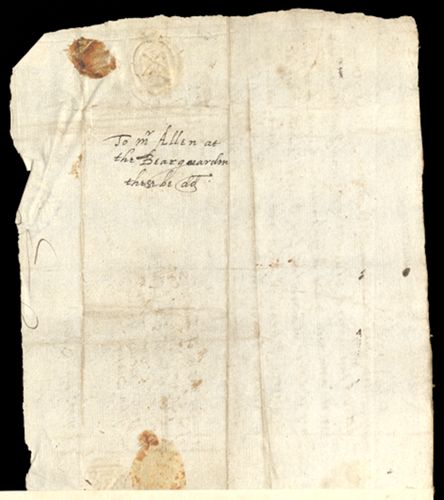 To mr Allen at
the Bearguarden
these be dd